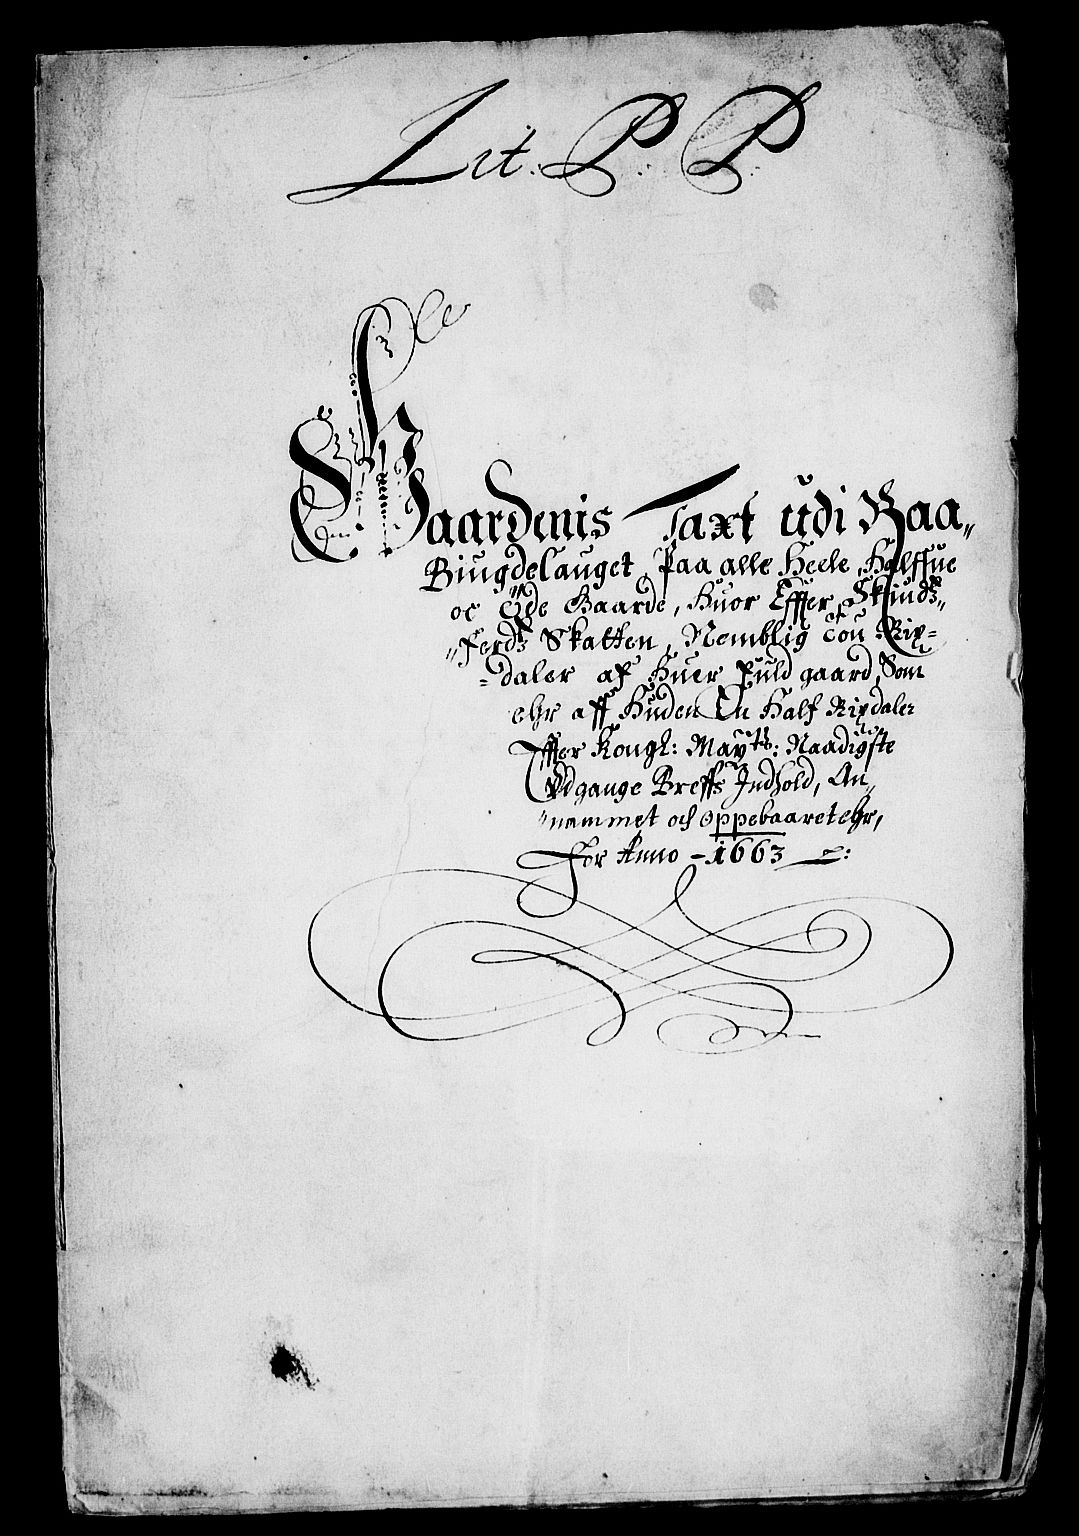 Lit. P. P.
Gaardenis Taxt udi Baa„
Biugdelauget, Paa alle Heele, Halffue
oc Øde Gaarde, Huor Effter Skinds„
„ferds Skatten, Nemblig tou Rix=
=daler af Huer fuld gaard, Som
ehr aff Huden En Half Rixdaler
Effter Kongl: Mayts: Naadigste
Udgange Breffs Indhold, An„
„nammet och oppebaaret ehr,
For Anno - 1663